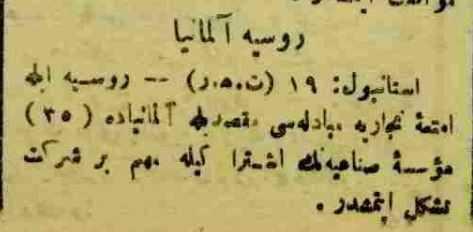 روسیه آلمانیا
استانبول: ١٩ (ت.ه.ر) -- روسیه ایله
امتعهٔ تجاریه مبادله‌سی مقصدیله آلمانیاده (٣٥)
مؤسسهٔ صناعیه‌نك اشترا کیله مهم بر شرکت
تشکل ایتمشدر .